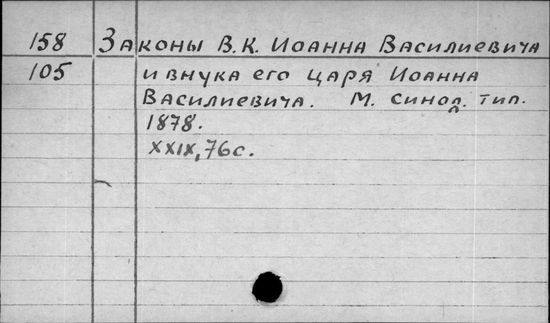 158 Законы В.К. Иоанна Василиевича
105 и внука его царя Иоанна
Василиевича. М. синод. тип.
1878.
XXIX, 76 с.